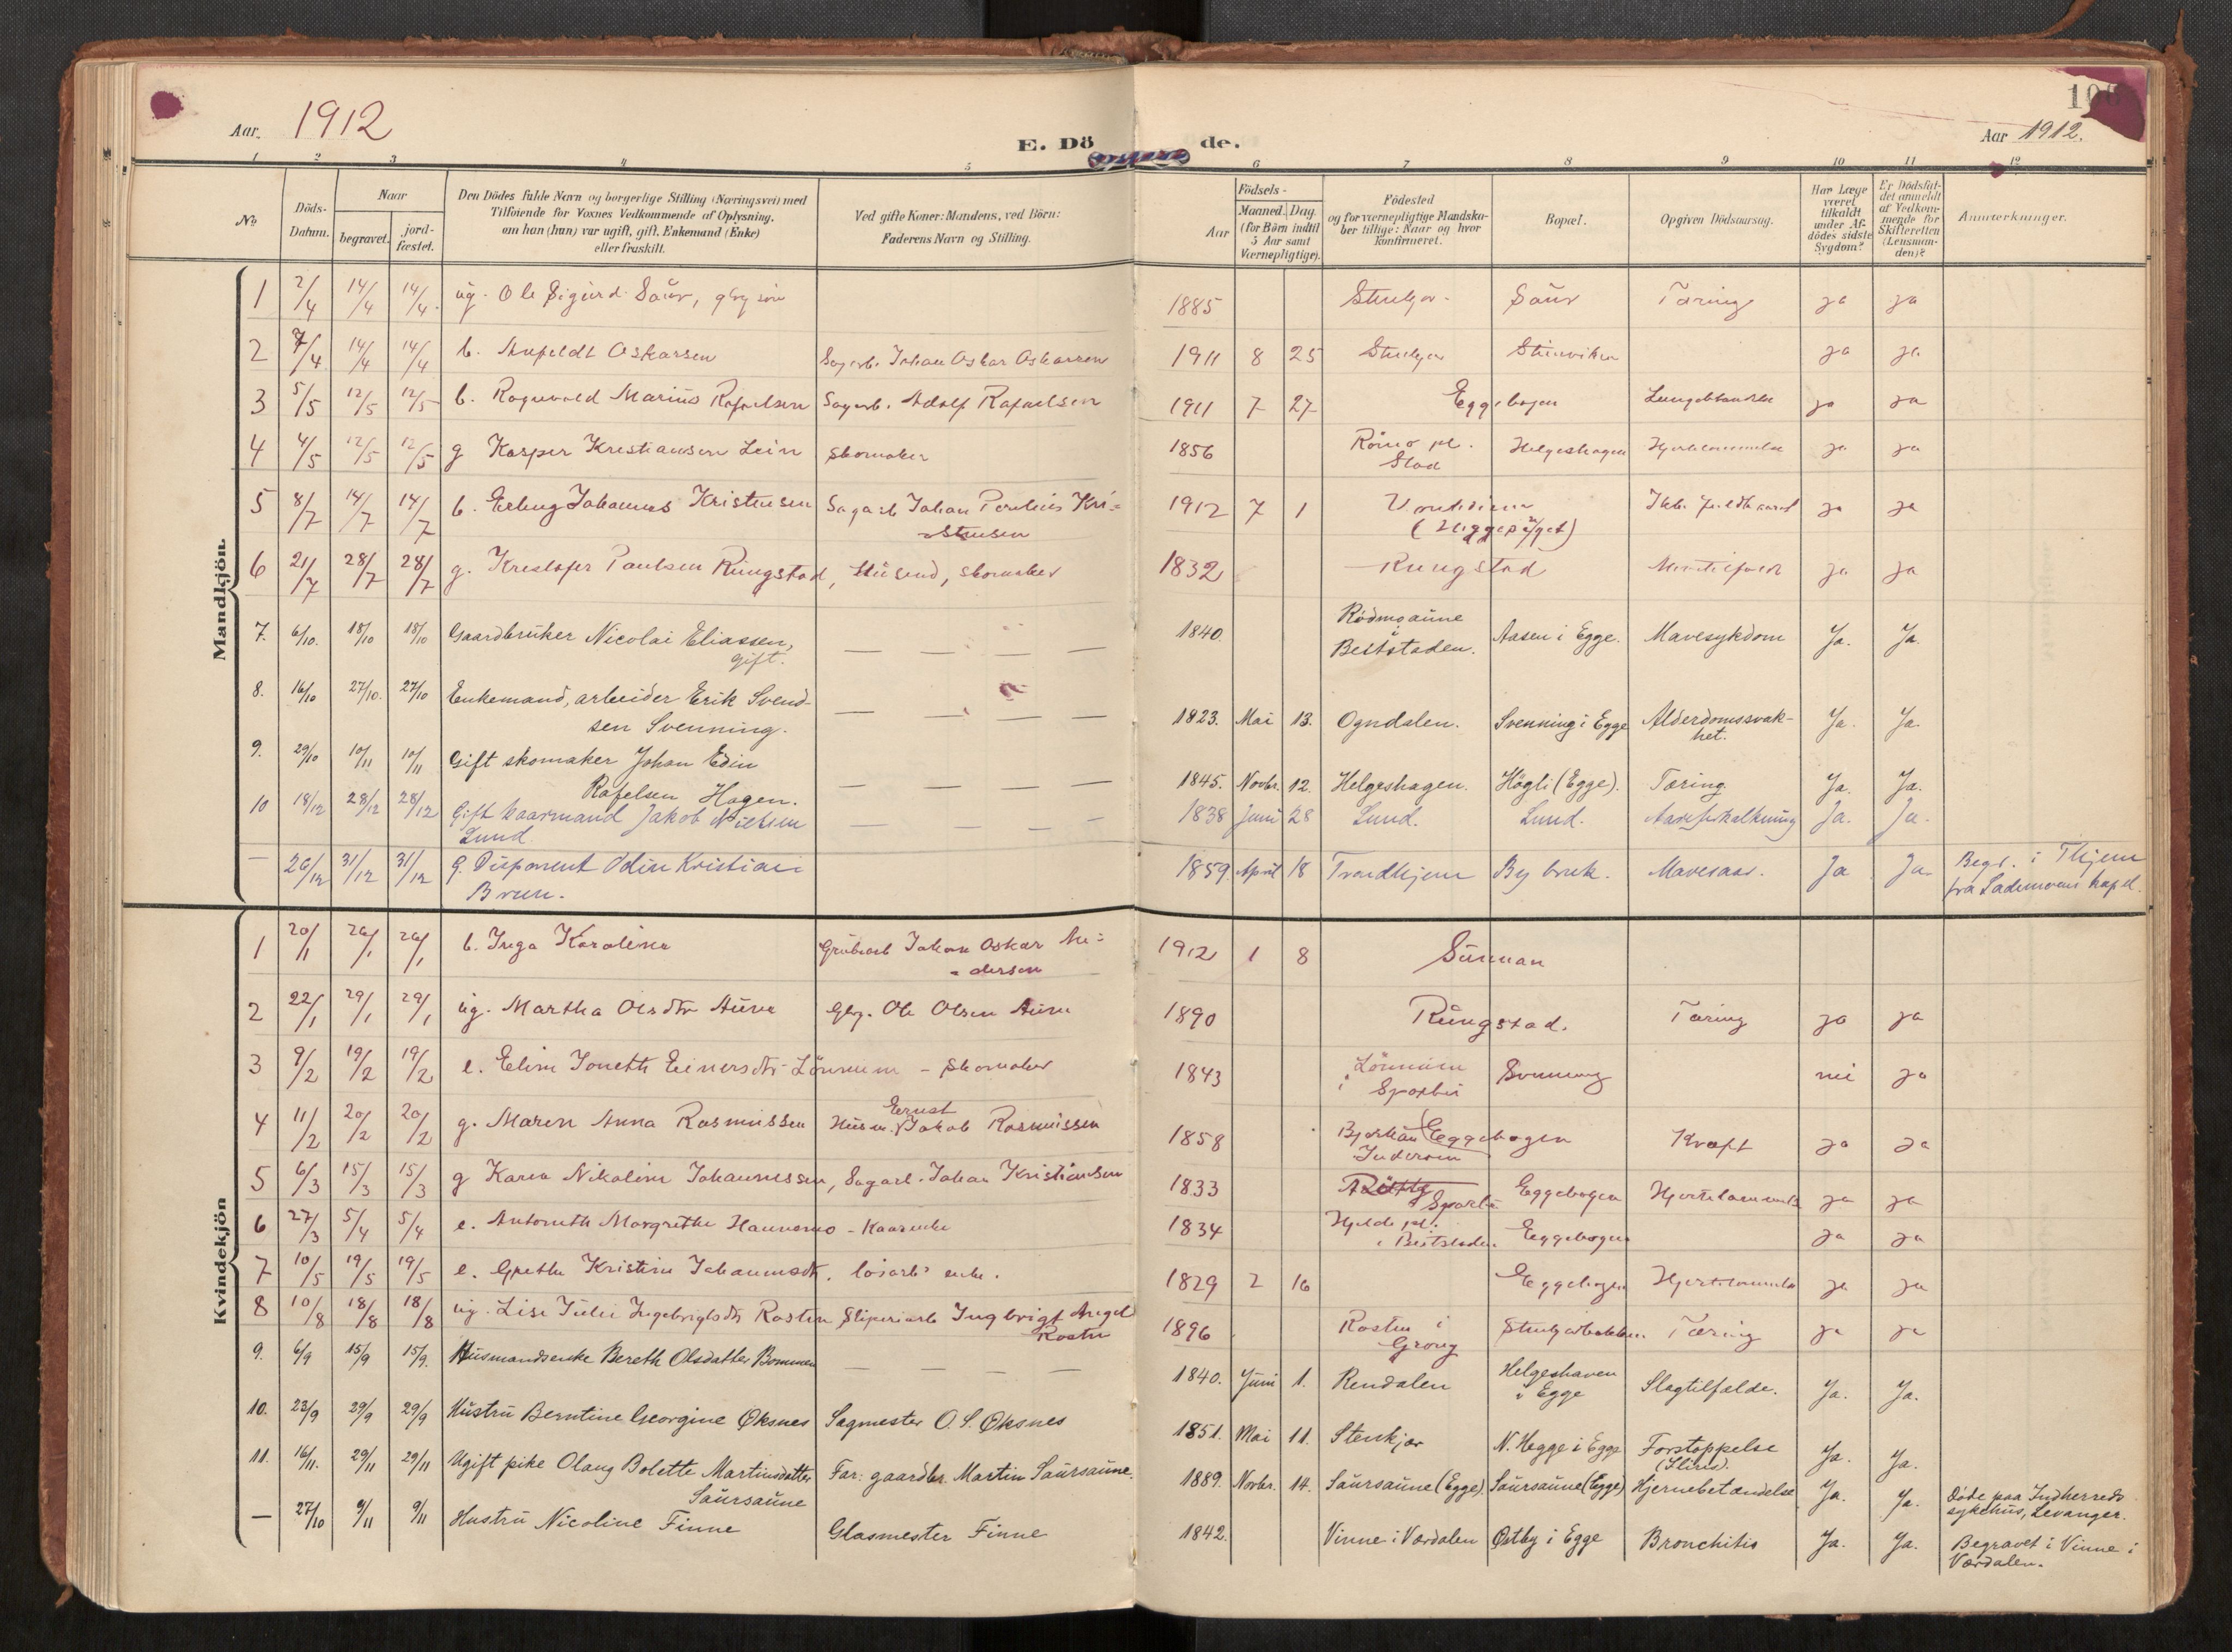 Aar. 1912
E. Dö de.
Aar 1912.
1 2 3 4 5 6 7 8 9 10 11 12
No
Döds-
Datum.
Naar
begravet.
jord-
fæstet.
Den Dödes fulde Navn og borgerlige Stilling (Næringsvei) med
Tilföiende for Voxnes Vedkommende af Oplysning,
om han (hun) var ugift, gift, Enkemand (Enke)
eller fraskilt.
Ved gifte Koner: Mandens, ved Börn:
Faderens Navn og Stilling.
Födsels-
Aar
Maaned. Dag.
(for Börn indtil
5 Aar samt
Værnepligtige).
Födested
og for værnepligtige Mandska-
ber tillige: Naar og hvor
konfirmeret.
Bopæl.
Opgiven Dödsaarsag.
Har Læge
været
tilkaldt
under Af-
dödes sidste
Sygdom?
Er Dödsfal-
det anmeldt
af Vedkom-
mende for
Skifteretten
(Lensman-
den)?
Anmærkninger.
Mandkjön.
1 2/4 14/4 14/4 ug. Ole Sigurd Saur, 1885 Saur Tæring ja ja
2 7/4 14/4 14/4 b. Oskarsen Sagarb. Johan Oskar Oskarsen 1911 8 25 ja ja
3 5/5 12/5 12/5 b. Ragnvald Marius Rafaelsen Sagarb. Adolf Rafaelsen 1911 7 27 Eggebogen ja ja
4 4/5 12/5 12/5 g Kasper Kristiansen Lein skomaker 1856
Stod Helgeshagen ja ja
5 8/7 14/7 14/7 b. Erling Johannes Kristensen Sagarb. Johan Kri=
stensen 1912 7 1 ja ja
6 21/7 28/7 28/7 g. Kristofer Paulsen Rungstad, Husmd, skomaker 1832 Rungstad ja ja
7. 6/10. 18/10 18/10 Gaardbruker Nicolai Eliassen,
gift. — — — — 1840. Rödmgaune
i
Beitstaden. Aasen i Egge. Mavesykdom Ja. Ja
8. 16/10 27/10. 27/10 Enkemand, arbeider Erik Svend-
sen Svenning. — — — — 1823. Mai 13. Ogndalen. Svenning i Egge Alderdomssvak-
het. Ja. Ja.
9. 29/10 10/11 10/11 Gift skomaker Johan Edin
Rafelsen Hagen. — — — — 1845. Novbr. 12. Helgeshagen. Högli (Egge). Tæring. Ja. Ja.
10 18/12 28/12 28/12 Gift kaarmand Jakob Nielsen
Lund. — — — — 1838 Juni 28 Lund. Lund. Aareforkalkning Ja. Ja.
— 26/12 31/12 31/12 g. Disponent Odin Kristian
Brun. 1859. April 18 Trondhjem By bruk. Mavesaar. Ja Ja. Begr. i Thjem
fra Lademoens kapel.
Kvindekjön
1 20/1 26/1 26/1 b. Inga Karoline Grubearb Johan Oskar An=
dersen 1912 1 8 Sunnan
2 22/1 29/1 29/1 ug. Martha Olsdtr Aune Gbr. Ole Olsen Aune 1890 Rungstad. Tæring ja ja
3 9/2 19/2 19/2 e. Elin Joneth Einersdtr Lönnum - Skomaker 1843 Lönnum
i Sparbu Svenning nei ja
4 11/2 20/2 20/2 g. Maren Anna Rasmussen Husm. Ernst Jakob Rasmussen 1858
Inderöen Eggebogen Kræft ja ja
5 6/3 15/3 15/3 g Karen Nikoline Johannessen, Sagarb. Johan Kristiansen 1833
Sparbu Eggebogen ja ja
6 27/3 5/4 5/4 e. Antoneth Margrethe Hammemo - Kaarenke 1834
i Beitstaden Eggebogen ja ja
7 10/5 19/5 19/5 e. Grethe Kristine Johannesdtr. løsarb enke. 1829 2 16 Eggebogen ja ja
8 10/8 18/8 18/8 ug. Lise Julie Ingebrigtsdtr Rosten Sliperiarb Ingbrigt Angel
Rosten 1896 Rosten i
Grong Tæring ja ja
9. 6/9 15/9 15/9. Husmandsenke Bereth Olsdatter Bommen — — — 1840. Juni 1. Rendalen Helgeshaven
i Egge Slagtilfælde. Ja. Ja.
10. 23/9 29/9 29/9 Hustru Berntine Georgine Øksnes Sagmester O. S. Øksnes 1851. Mai 11. Stenkjær N. Hegge i Egge Forstoppelse
Ja. Ja.
11. 16/11. 29/11 29/11 Ugift pike Olaug Bolette Martinsdatter
Saursaune Far: gaardbr. Martin Saursaune. 1889. Novbr. 14. Saursaune (Egge). Saursaune (Egge) Hjernebetændelse Ja. Ja. Døde paa Indherreds
sykehus, Levanger.
— 27/10 9/11 9/11 Hustru Nicoline Finne Glasmester Finne 1842. Vinne i Værdalen Østby i Egge Bronchitis Ja. Ja. Begravet i Vinne i
Værdalen.